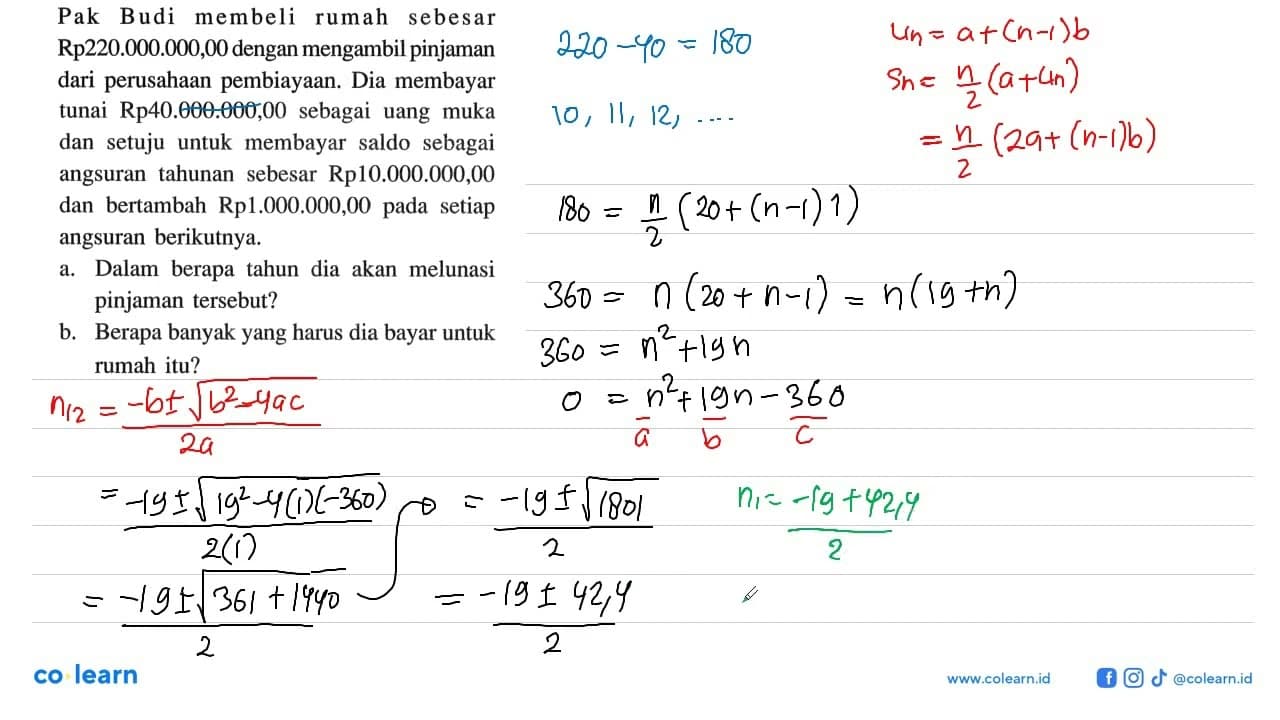 Pak Budi membeli rumah sebesar
Rp220.000.000,00 dengan mengambil pinjaman
dari perusahaan pembiayaan. Dia membayar
tunai Rp40.000.000,00 sebagai uang muka
dan setuju untuk membayar saldo sebagai
angsuran tahunan sebesar Rp10.000.000,00
dan bertambah Rp1.000.000,00 pada setiap
angsuran berikutnya.
a. Dalam berapa tahun dia akan melunasi
pinjaman tersebut?
b. Berapa banyak yang harus dia bayar untuk
rumah itu?
220 - 40 = 180
10, 11, 12, ....
Un = a + (n-1)b
Sn = n/2 (a + Un)
= n/2 (2a + (n-1)b)
180 = n/2 (20 + (n-1) 1)
360 = n (20 + n - 1) = n (19 + n)
360 = n² + 19n
0 = n² + 19n - 360
a b c
n12 = (-b ± √(b² - 4ac))/2a
= (-19 ± √(19² - 4(1)(-360)))/2(1)
= (-19 ± √(361 + 1440))/2
= (-19 ± √1801)/2
= (-19 ± 42,4)/2
n1 = (-19 + 42,4)/2
co learn
www.colearn.id
@colearn.id